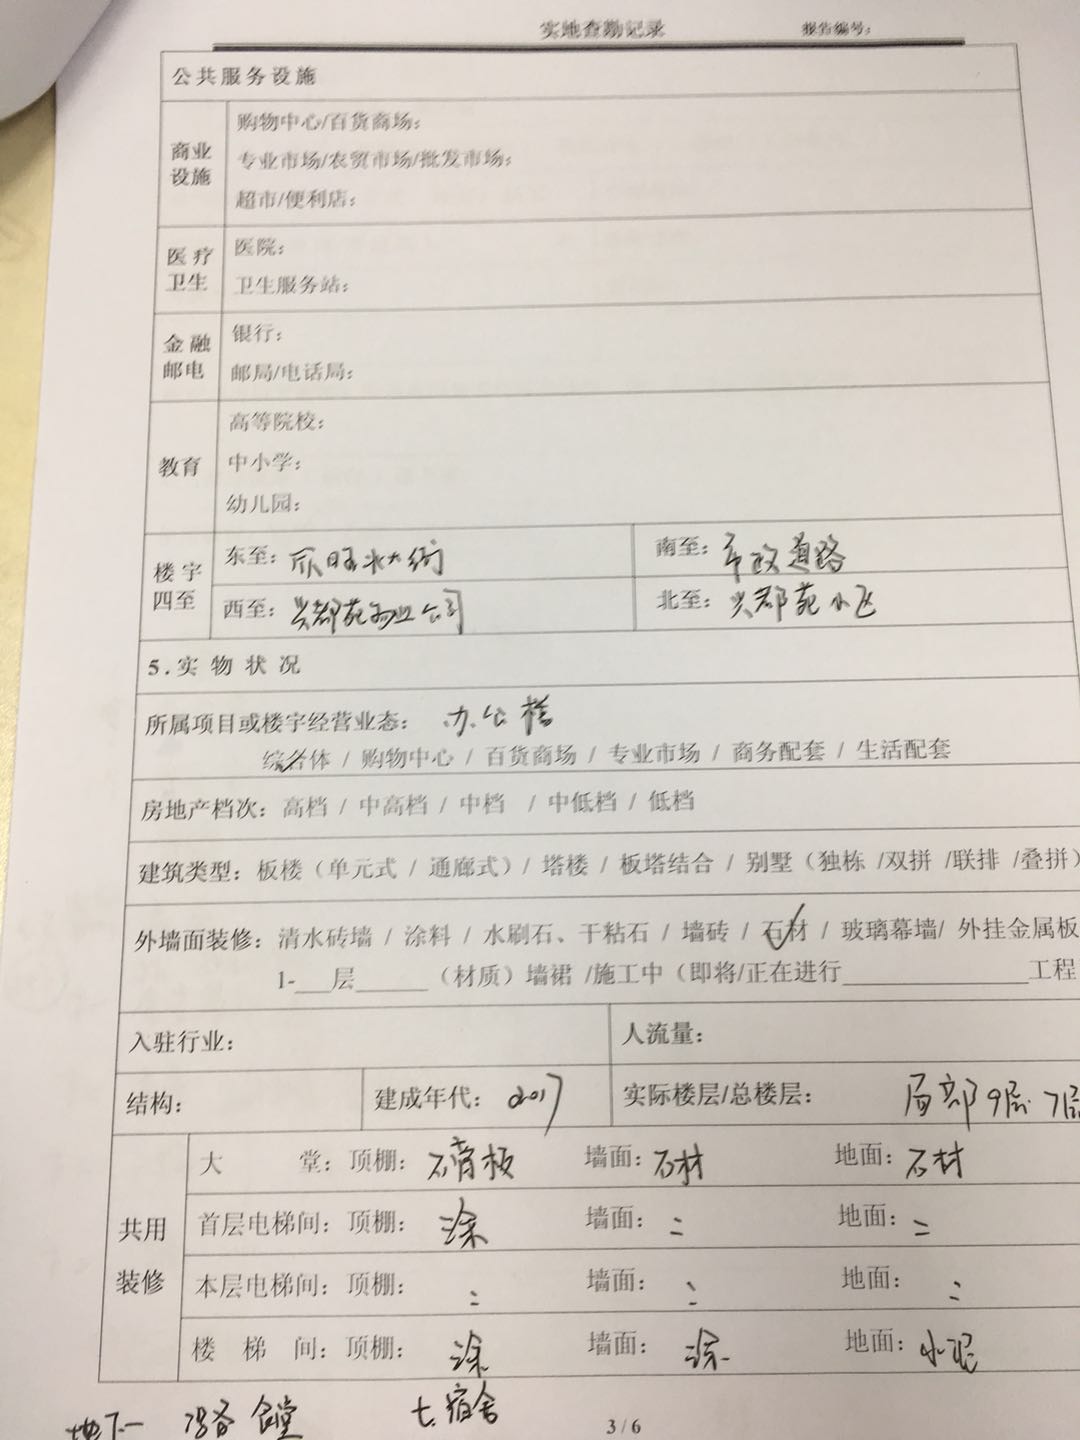 实地查勘记录 报告编号:
公共服务设施
商业设施
购物中心/百货商场:
专业市场/农贸市场/批发市场:
超市/便利店:
医疗卫生
医院:
卫生服务站:
金融邮电
银行:
邮局/电话局:
教育
高等院校:
中小学:
幼儿园:
楼宇四至
东至: 大街 南至: 市政道路
西至: 兴都苑物业公司 北至: 兴都苑小区
5.实物状况
所属项目或楼宇经营业态: 办公楼
综合体 / 购物中心 / 百货商场 / 专业市场 / 商务配套 / 生活配套
房地产档次: 高档 / 中高档 / 中档 / 中低档 / 低档
建筑类型: 板楼（单元式 / 通廊式）/ 塔楼 / 板塔结合 / 别墅（独栋 /双拼 /联排 /叠拼）
外墙面装修: 清水砖墙 / 涂料 / 水刷石、干粘石 / 墙砖 / 石材 / 玻璃幕墙/ 外挂金属板
1-___层______（材质）墙裙 /施工中（即将/正在进行_______________工程
入驻行业: 人流量:
结构: 建成年代: 2017 实际楼层/总楼层: 局部9层. 7层
共用装修
大 堂: 顶棚: 石膏板 墙面: 石材 地面: 石材
首层电梯间: 顶棚: 涂 墙面: 地面:
本层电梯间: 顶棚: 墙面: 地面:
楼 梯 间: 顶棚: 涂 墙面: 涂 地面: 水泥
地下一 设备 食堂 七.宿舍
3 / 6